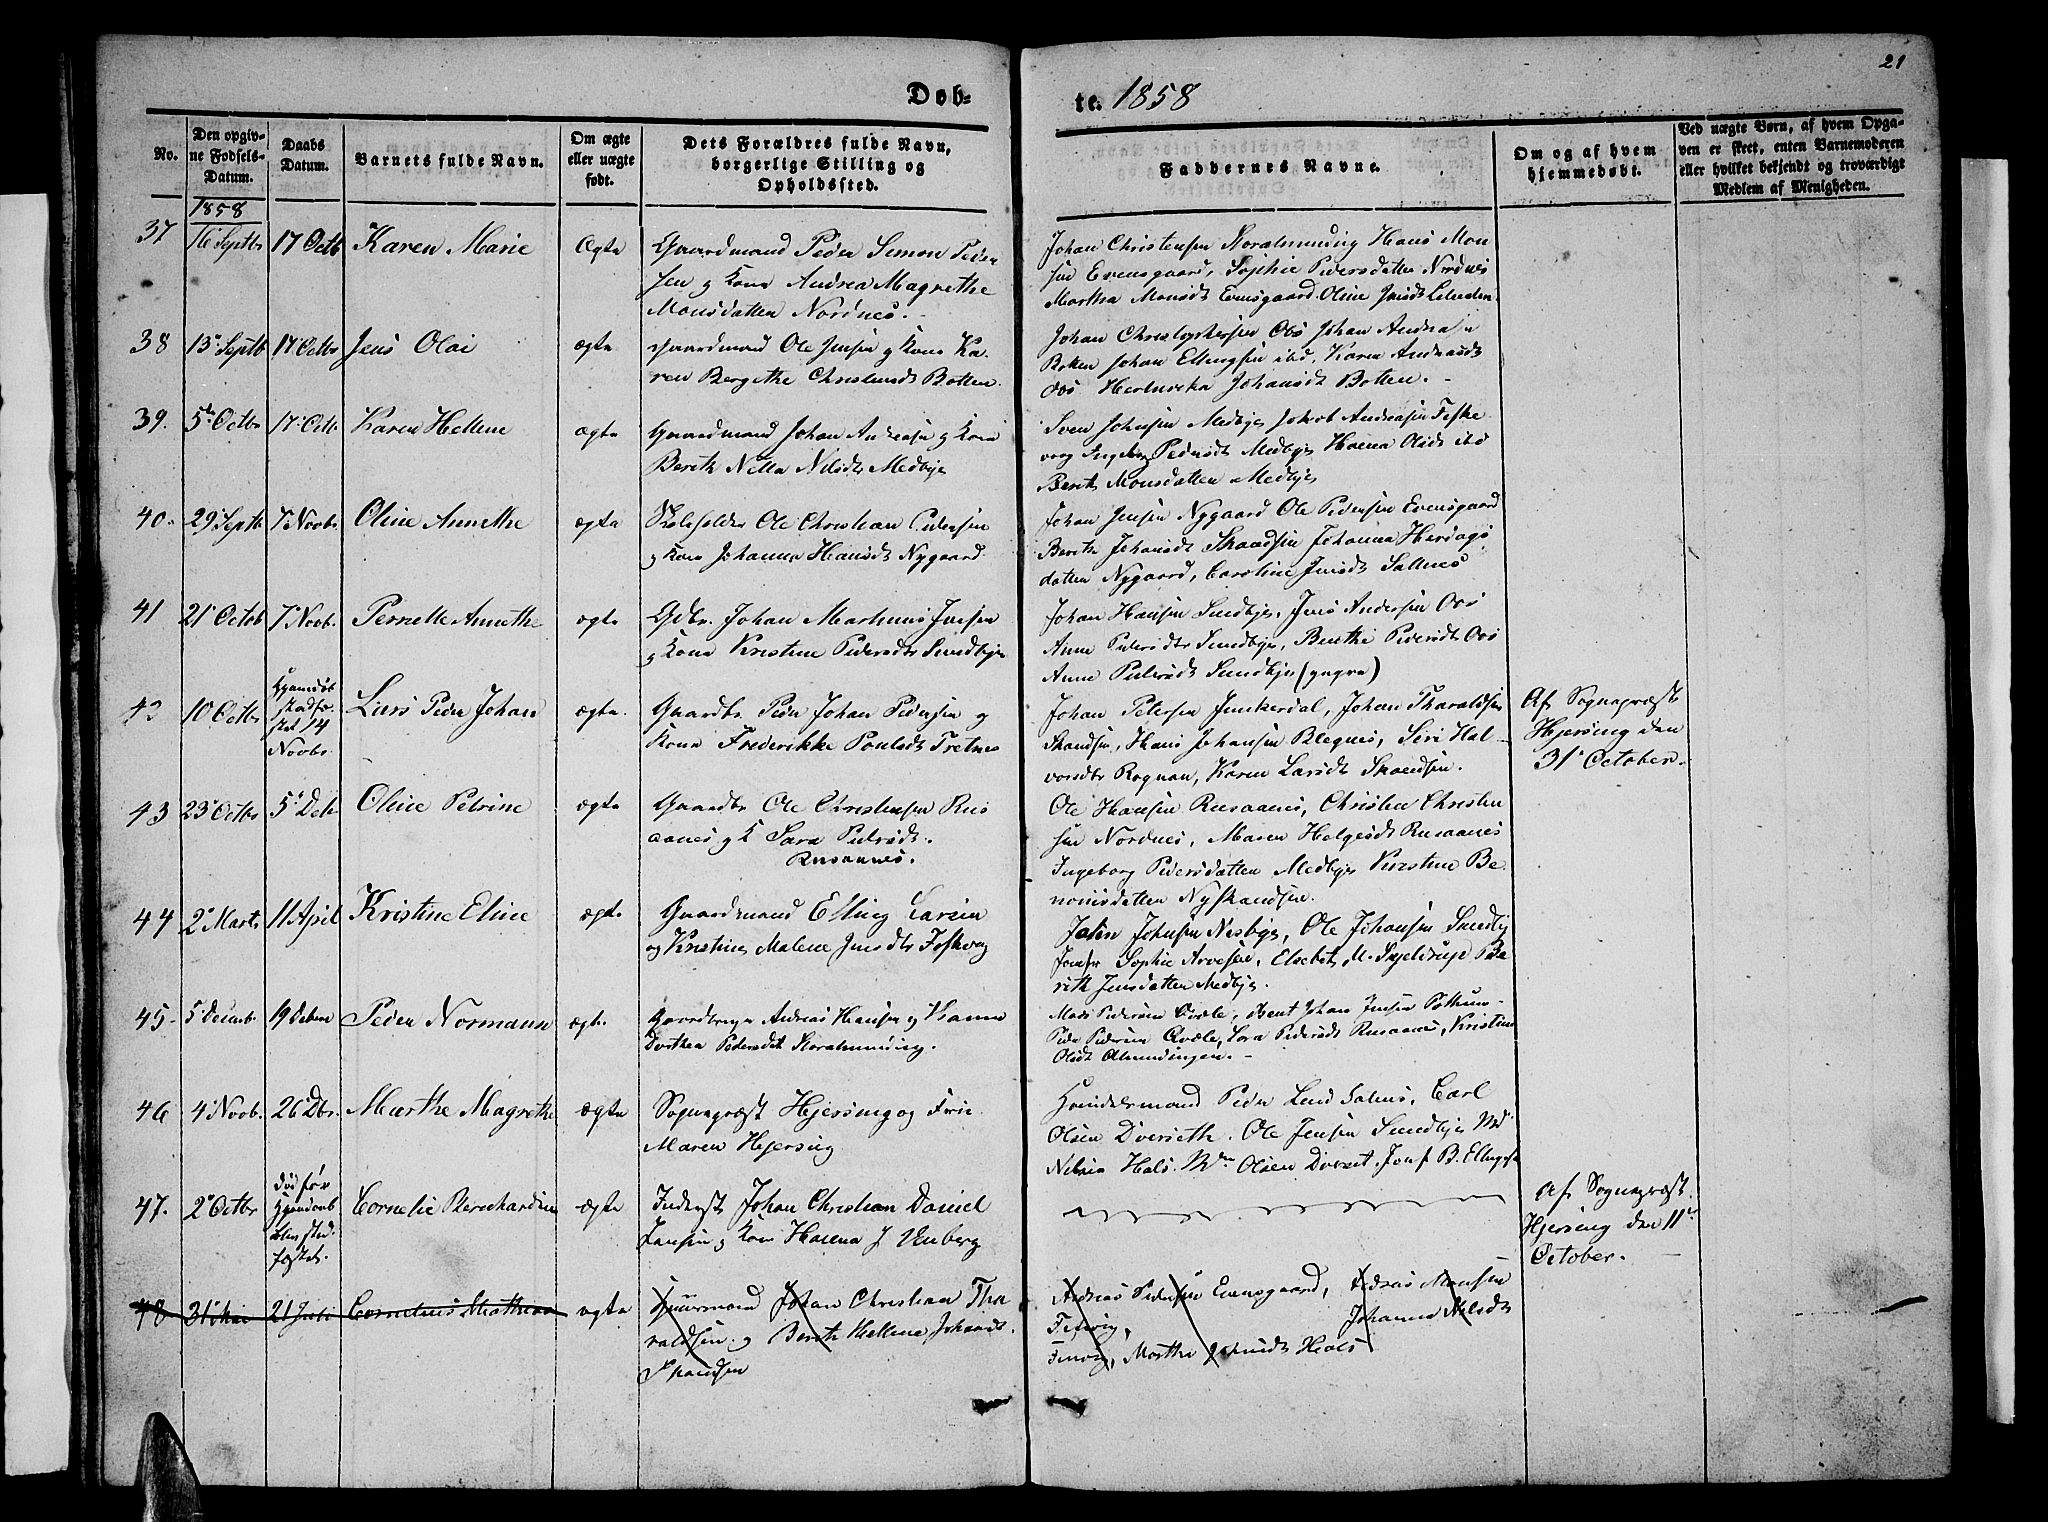 21
Døb-
te. 1858
No.
Den opgiv-
ne Fødsels-
Datum.
Daabs
Datum.
Barnets fulde Navn.
Om ægte
eller uægte
født.
Dets Forældres fulde Navn,
borgerlige Stilling og
Opholdssted.
Faddernes Navne.
Om og af hvem
hjemmedøbt.
Ved uægte Børn, af hvem Opga-
ven er skeet, enten Barnemoderen
eller hvilket bekjendt og troværdigt
Medlem af Menigheden.
1858
37
16 Septbr
17 Octb
Karen Marie
Ægte
Gaardmand Peder Simon Peder
sen og Kone Andrea Magrethe
Monsdatter Nordnes.
Johan Christensen Hans Mon
sen Evensgaard, Sophie Pedersdatter Nordnes
Martha Monsdt Evensgaard. Oline
38
13 Septb
17 Octbr
Jens Olai
ægte
Gaardmand Ole Jensen og Kone Ka-
ren Bergithe Botten.
Johan Christophersen Johan Andrea
Botten Johan Ellingsen ibd. Karen Andreasdt
Johansdt Botten.
39.
5te Octbr
17 Octb
Karen Hellene
ægte
Gaardmand Johan Andreasen og Kone
Berith Nilla Nilsdt Medbye
Sven Johnsen Medbye Jakob Andreasen Fiske
vaag Ingeborg Pedersdt Medbye Olsdt ibd
Berith Monsdatter Medbye
40.
29 Septb
7 Novbr
Oline Annethe
ægte
Skoleholder Ole Christian Pedersen
og Kone Johanna Hansdt Nygaard
Johan Jensen Nygaard Ole Pedersen Evensgaard
Berith Johansdt Skandsen Johanna
datter Nygaard, Caroline Jensdt Saltnes
41
21 Octob
7 Novbr.
Pernelle Annethe
ægte
Gdbr. Johan Martinus Jensen
og Kone Kristine Pedersdtr Sundbye
Johan Hansen Sundbye, Jens Andersen
Anne Pedersdtr Sundbye, Pedersdtr
Anne Pedersdt Sundbye (yngre)
42
10 Octbr
Hjemdøb
stadfæ
stet 14
Novbr
Lars Peder Johan
ægte.
Gaardbr Peder Johan Pedersen og
Kone Frederikke Paulsdt Tretnes
Johan Petersen Junkerdal, Johan Tharaldsen
Skandsen, Hans Johansen Blegnes, Siri Hal-
vorsdtr Rognan, Karen Larsdt Skandsen.
Af Sognepræst
Hjersing den
31 October.
43
23 Octbr
5 Deb
Oline Petrine
ægte
Gaardbr Ole Christensen Rus
aanes og K Sara Pedersdt.
Rusaanes.
Ole Hansen Rusaanes, Christen Christen
sen Nordnes, Maren Helgesdt Rusaanes
Ingeborg Pedersdatter Medbye Kristine Be-
nonisdatter Nyskandsen.
44
2 Marts
11 April
Kristine Eline
ægte
Gaardmand Elling Larsen
og Kristine Malene Jensdtr Fiskvaag
Johnsen Nesbye, Ole Johansen Sundby
Jomfr Sophie Elsebet M. Skjelderup Be
rith Jensdatter Medbye.
45
5 Decemb.
19 Debr
Peder Normann
ægte.
Gaardbruger Andreas Hansen og Kone
Dorthea Pedersdt
Mads Pedersen Johan Jensen
Peder Pedersen Sara Pedersdt Rusaanes, Kristine
Olsdt Almindingen.
46
4 Novb.
26 Dbr.
Marthe Magrethe
ægte
Sognepræst Hjersing og Frue
Maren Hjersing
Handelsmand Peder Lund Saltnes, Carl
Olsen Dverseth. Ole Jensen Sundbye
Hals. Olsen Jomf B. Ellingsen
47.
2 Octbr
død før
Hjemdaab
blev stad-
fæstet.
Cornelie Bernhardine
ægte
Inderst Johan Christian Daniel
Jansen og Kone J Venberg
Af Sognepræst
Hjersing den 11te
October.
48
31 Mai
21 Juli
Cornelius Mathias
ægte
Johan Christian Tha
raldsen og Berith Hellene Johansdt.
Skandsen
Andreas Pedersen Evensgaard, Andreas Monsen
Johanna Nilsdt
Marthe Hals